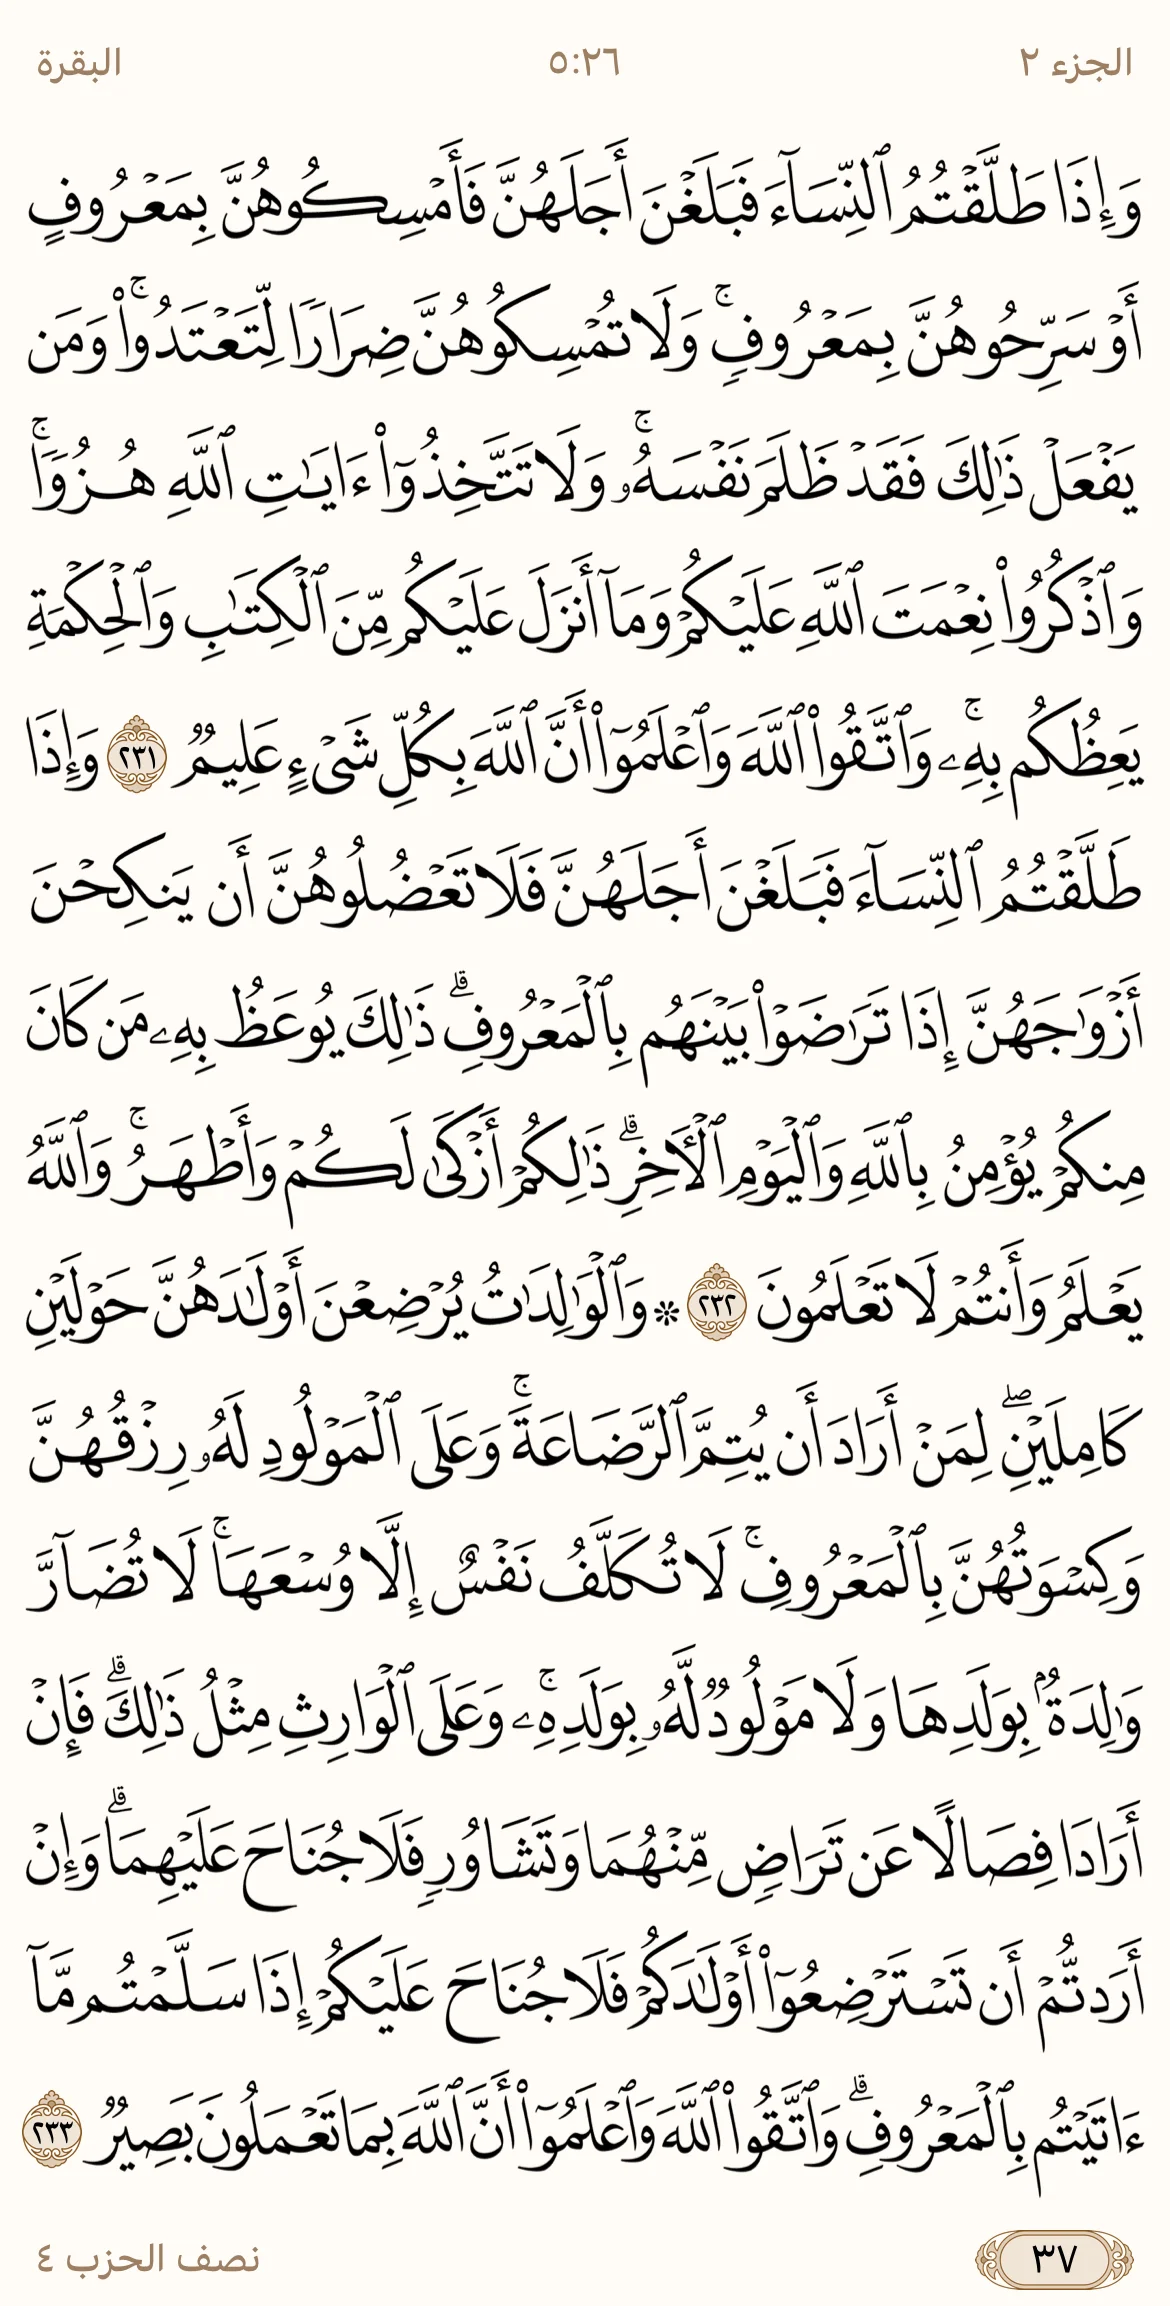 الجزء ٢ ٥:٢٦ البقرة
وَإِذَا طَلَّقۡتُمُ ٱلنِّسَآءَ فَبَلَغۡنَ أَجَلَهُنَّ فَأَمۡسِكُوهُنَّ بِمَعۡرُوفٍ
أَوۡ سَرِّحُوهُنَّ بِمَعۡرُوفٖۚ وَلَا تُمۡسِكُوهُنَّ ضِرَارٗا لِّتَعۡتَدُواْۚ وَمَن
يَفۡعَلۡ ذَٰلِكَ فَقَدۡ ظَلَمَ نَفۡسَهُۥۚ وَلَا تَتَّخِذُوٓاْ ءَايَٰتِ ٱللَّهِ هُزُوٗاۚ
وَٱذۡكُرُواْ نِعۡمَتَ ٱللَّهِ عَلَيۡكُمۡ وَمَآ أَنزَلَ عَلَيۡكُم مِّنَ ٱلۡكِتَٰبِ وَٱلۡحِكۡمَةِ
يَعِظُكُم بِهِۦۚ وَٱتَّقُواْ ٱللَّهَ وَٱعۡلَمُوٓاْ أَنَّ ٱللَّهَ بِكُلِّ شَيۡءٍ عَلِيمٞ ٢٣١ وَإِذَا
طَلَّقۡتُمُ ٱلنِّسَآءَ فَبَلَغۡنَ أَجَلَهُنَّ فَلَا تَعۡضُلُوهُنَّ أَن يَنكِحۡنَ
أَزۡوَٰجَهُنَّ إِذَا تَرَٰضَوۡاْ بَيۡنَهُم بِٱلۡمَعۡرُوفِۗ ذَٰلِكَ يُوعَظُ بِهِۦ مَن كَانَ
مِنكُمۡ يُؤۡمِنُ بِٱللَّهِ وَٱلۡيَوۡمِ ٱلۡأٓخِرِۗ ذَٰلِكُمۡ أَزۡكَىٰ لَكُمۡ وَأَطۡهَرُۚ وَٱللَّهُ
يَعۡلَمُ وَأَنتُمۡ لَا تَعۡلَمُونَ ٢٣٢ * وَٱلۡوَٰلِدَٰتُ يُرۡضِعۡنَ أَوۡلَٰدَهُنَّ حَوۡلَيۡنِ
كَامِلَيۡنِۖ لِمَنۡ أَرَادَ أَن يُتِمَّ ٱلرَّضَاعَةَۚ وَعَلَى ٱلۡمَوۡلُودِ لَهُۥ رِزۡقُهُنَّ
وَكِسۡوَتُهُنَّ بِٱلۡمَعۡرُوفِۚ لَا تُكَلَّفُ نَفۡسٌ إِلَّا وُسۡعَهَاۚ لَا تُضَآرَّ
وَٰلِدَةُۢ بِوَلَدِهَا وَلَا مَوۡلُودٞ لَّهُۥ بِوَلَدِهِۦۚ وَعَلَى ٱلۡوَارِثِ مِثۡلُ ذَٰلِكَۗ فَإِنۡ
أَرَادَا فِصَالًا عَن تَرَاضٖ مِّنۡهُمَا وَتَشَاوُرٖ فَلَا جُنَاحَ عَلَيۡهِمَاۗ وَإِنۡ
أَرَدتُّمۡ أَن تَسۡتَرۡضِعُوٓاْ أَوۡلَٰدَكُمۡ فَلَا جُنَاحَ عَلَيۡكُمۡ إِذَا سَلَّمۡتُم مَّآ
ءَاتَيۡتُم بِٱلۡمَعۡرُوفِۗ وَٱتَّقُواْ ٱللَّهَ وَٱعۡلَمُوٓاْ أَنَّ ٱللَّهَ بِمَا تَعۡمَلُونَ بَصِيرٞ ٢٣٣
٣٧ نصف الحزب ٤